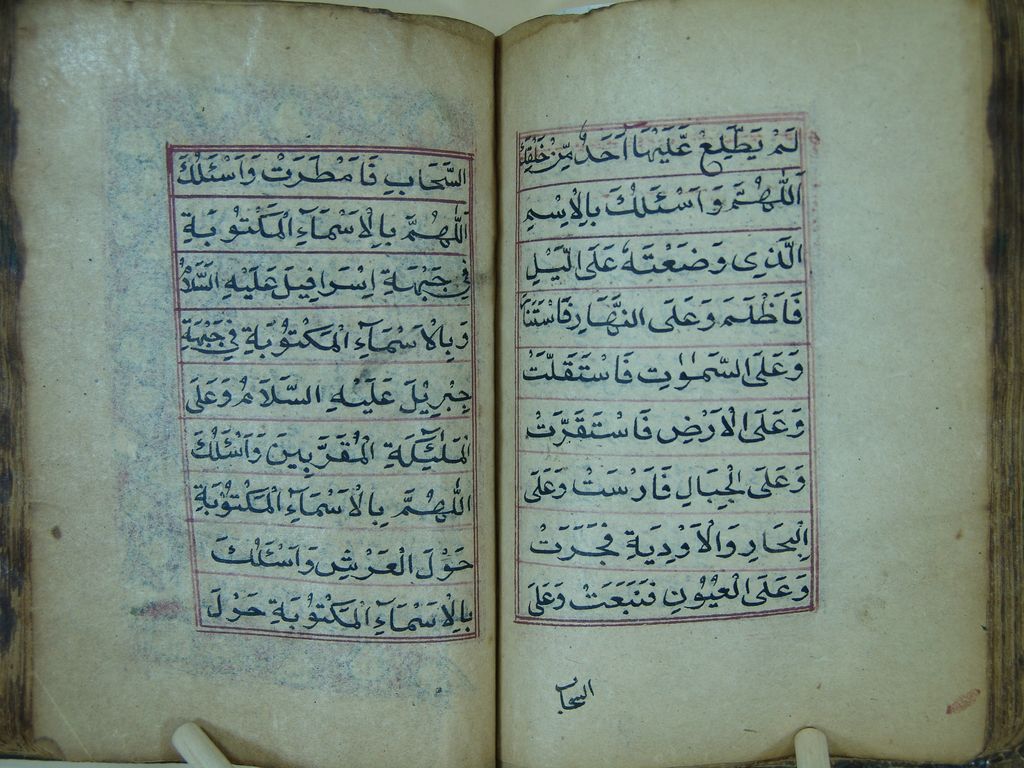 لَمْ يَطَّلِعْ عَلَيْهَا اَحَدٌ مِّنْ خَلْقِكَ
اَللّٰهُمَّ وَاَسْئَلُكَ بِالْاِسْمِ
الَّذِى وَضَعْتَهٗ عَلَى الَّيْلِ
فَاَظْلَمَ وَعَلَى النَّهَارِ فَاسْتَنَارَ
وَعَلَى السَّمٰوٰتِ فَاسْتَقَلَّتْ
وَعَلَى الْاَرْضِ فَاسْتَقَرَّتْ
وَعَلَى الْجِبَالِ فَاَرْسَتْ وَعَلَى
الْبِحَارِ وَالْاَوْدِيَةِ فَجَرَتْ
وَعَلَى الْعُيُوْنِ فَنَبَعَتْ وَعَلَى
السحاب
السَّحَابِ فَاَمْطَرَتْ وَاَسْئَلُكَ
اَللّٰهُمَّ بِالْاَسْمَآءِ الْمَكْتُوْبَةِ
فِىْ جَبْهَةِ اِسْرَافِيْلَ عَلَيْهِ السَّلَامُ
وَبِالْاَسْمَآءِ الْمَكْتُوْبَةِ فِىْ جَبْهَةِ
جِبْرِيْلَ عَلَيْهِ السَّلَامُ وَعَلَى
الْمَلٰٓئِكَةِ الْمُقَرَّبِيْنَ وَاَسْئَلُكَ
اَللّٰهُمَّ بِالْاَسْمَآءِ الْمَكْتُوْبَةِ
حَوْلَ الْعَرْشِ وَاَسْئَلُكَ
بِالْاَسْمَآءِ الْمَكْتُوْبَةِ حَوْلَ